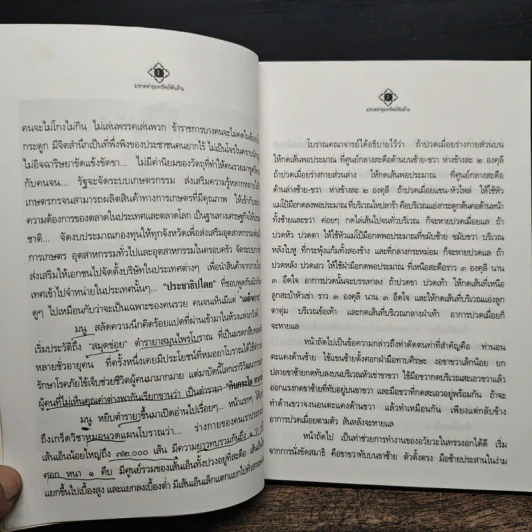 มรดกล่าขุมทรัพย์พันล้าน
คนจะไม่โกงไม่กิน ไม่เล่นพรรคเล่นพวก ข้าราชการบางคนจะไม่คดใน
กระดูก มีจิตสำนึกเป็นที่พึ่งพิงของประชาชนคนยากไร้ ไม่เป็นโจรใน
ไม่อิจฉาริษยาขัดแข้งขัดขา... ไม่มีค่านิยมของวัตถุที่ทำให้คนรวยมาดูถูก
กับคนจน... รัฐจะจัดระบบเกษตรกรรม ส่งเสริมความรู้หลากหลาย
เกษตรกรจนสามารถผลิตสินค้าทางการเกษตรที่มีคุณภาพ ให้
ความต้องการของตลาดในประเทศและตลาดโลก เป็นฐานทางเศรษฐกิจ
ชาติ... จัดงบประมาณกองทุนให้ทุกจังหวัดเพื่อส่งเสริมอุตสาหกรรม
การเกษตร อุตสาหกรรมทั่วไปและอุตสาหกรรมในครอบครัว จัดระบบ
ส่งเสริมให้เอกชนไปจัดตั้งบริษัทในประเทศต่างๆ เพื่อนำสินค้าจาก
เทศเข้าไปจำหน่ายในประเทศนั้นๆ... "ประชาธิปไตย" ที่ชอบพูดกัน
ดูๆ ไปเหมือนกับว่าจะเป็นเฉพาะของคนรวย คนจนเห็นมีแต่
มนู สลัดความนึกคิดร้อยแปดที่ผ่านเข้ามาในหัวแห่ง
เริ่มประวัติถึง "สมุดข่อย" ตำรายาสมุนไพรโบราณ ที่เป็นมรดกสืบทอด
หลายชั่วอายุคน ที่ครั้งหนึ่งเคยมีประโยชน์ที่หมอยาโบราณได้ใช้
รักษาโรคภัยไข้เจ็บช่วยชีวิตผู้คนมามากมาย แต่มาบัดนี้โลกเราวิวัฒนาการ
ผู้คนที่ไม่เห็นคุณค่าต่างพากันเรียกขานว่า เป็นตำรายา
มนู หยิบตำรายาขึ้นมาเปิดอ่านไปเรื่อยๆ... หน้าแรกๆ
ถึงเกร็ดวิชาหมอนวดแผนโบราณว่า... ร่างกายของคนเรา
เส้นเอ็นน้อยใหญ่ถึง ๗๒,๐๐๐ เส้น มีความยาวทบรวมกันถึง
ศอก หนา ๑ คืบ มีศูนย์รวมของเส้นเอ็นทั้งปวงอยู่ที่สะดือ
แยกขึ้นไปเบื้องสูง และแยกลงเบื้องต่ำ มีเส้นเอ็นเล็กแตกแยกไป
มรดกล่าขุมทรัพย์พันล้าน
โบราณคณาจารย์ได้อธิบายไว้ว่า ถ้าปวดเมื่อยร่างกายส่วนบน
ให้กดเส้นพอประมาณ ที่ศูนย์กลางสะดือด้านบนซ้าย-ขวา ห่างข้างละ ๒ องคุลี
ถ้าปวดเมื่อยร่างกายส่วนล่าง ให้กดเส้นพอประมาณ ที่ศูนย์กลางสะดือ
ด้านล่างซ้าย-ขวา ห่างข้างละ ๒ องคุลี ถ้าปวดเมื่อยแขน-หัวไหล่ ให้ใช้หัว
แม่โป้มือกดลงพอประมาณ ที่บริเวณไหปลาร้า คือบริเวณแอ่งกระดูกต้นคอด้านหน้า
ทั้งซ้ายและขวา ค่อยๆ กดไล่เส้นไปจนทั่วบริเวณ ก็จะหายปวดเมื่อยแล ถ้า
ปวดหัว ปวดตา ให้ใช้หัวแม่โป้มือกดพอประมาณที่ขมับซ้าย ขมับขวา บริเวณ
หลังใบหู ที่กระพุ้งแก้มทั้งสองข้าง และที่กลางกระหม่อม ก็จะหายปวดแล ถ้า
ปวดหลัง ปวดเอว ให้ใช้ฝ่ามือกดพอประมาณ ที่เหนือสะดือราว ๓ องคุลี นาน
๓ อึดใจ อาการปวดนั้นจะบรรเทาลง ถ้าปวดขา ปวดเท้า ให้กดเส้นที่เหนือ
ลูกสะบ้าหัวเข่า ราว ๓ องคุลี นาน ๓ อึดใจ และให้กดเส้นที่บริเวณแอ่งลูก
ตาตุ่ม บริเวณข้อเท้า และกดเส้นที่บริเวณกลางฝ่าเท้า อาการปวดเมื่อยก็
จะหายแล
หน้าถัดไปเป็นข้อความกล่าวถึงท่าดัดตนท่าที่สำคัญคือ ท่านอน
ตะแคงด้านซ้าย ใช้แขนซ้ายตั้งศอกฝ่ามือทาบศีรษะ งอขาซ้ายเล็กน้อย ยก
ปลายขาซ้ายกดทับลงบนบริเวณหัวเข่าขาขวา ใช้มือขวากดบริเวณสะเอวขวาแล้ว
ออกแรงกดขาซ้ายที่ทับอยู่บนขาขวา และมือขวาที่กดสะเอวอยู่พร้อมกัน ถ้าจะ
ทำด้านขวาจงนอนตะแคงด้านขวา แล้วทำเหมือนกัน เพียงแต่กลับข้าง
อาการปวดเมื่อยตามตัว สันหลังจะหายแล
หน้าถัดไป เป็นท่าช่วยการทำงานของอวัยวะในทรวงอกได้ดี เริ่ม
จากการนั่งขัดสมาธิ คือขาขวาทับบนขาซ้าย ตัวตั้งตรง มือซ้ายประสานในง่าม